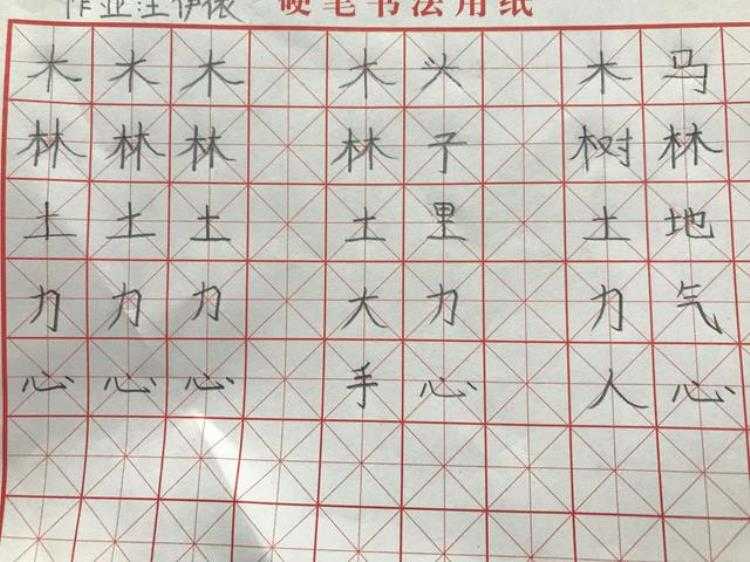 作业汪伊依 硬笔书法用纸
木木木 木头 木马
林林林 林子 树林
土土土 土里 土地
力力力 大力 力气
心心心 手心 人心